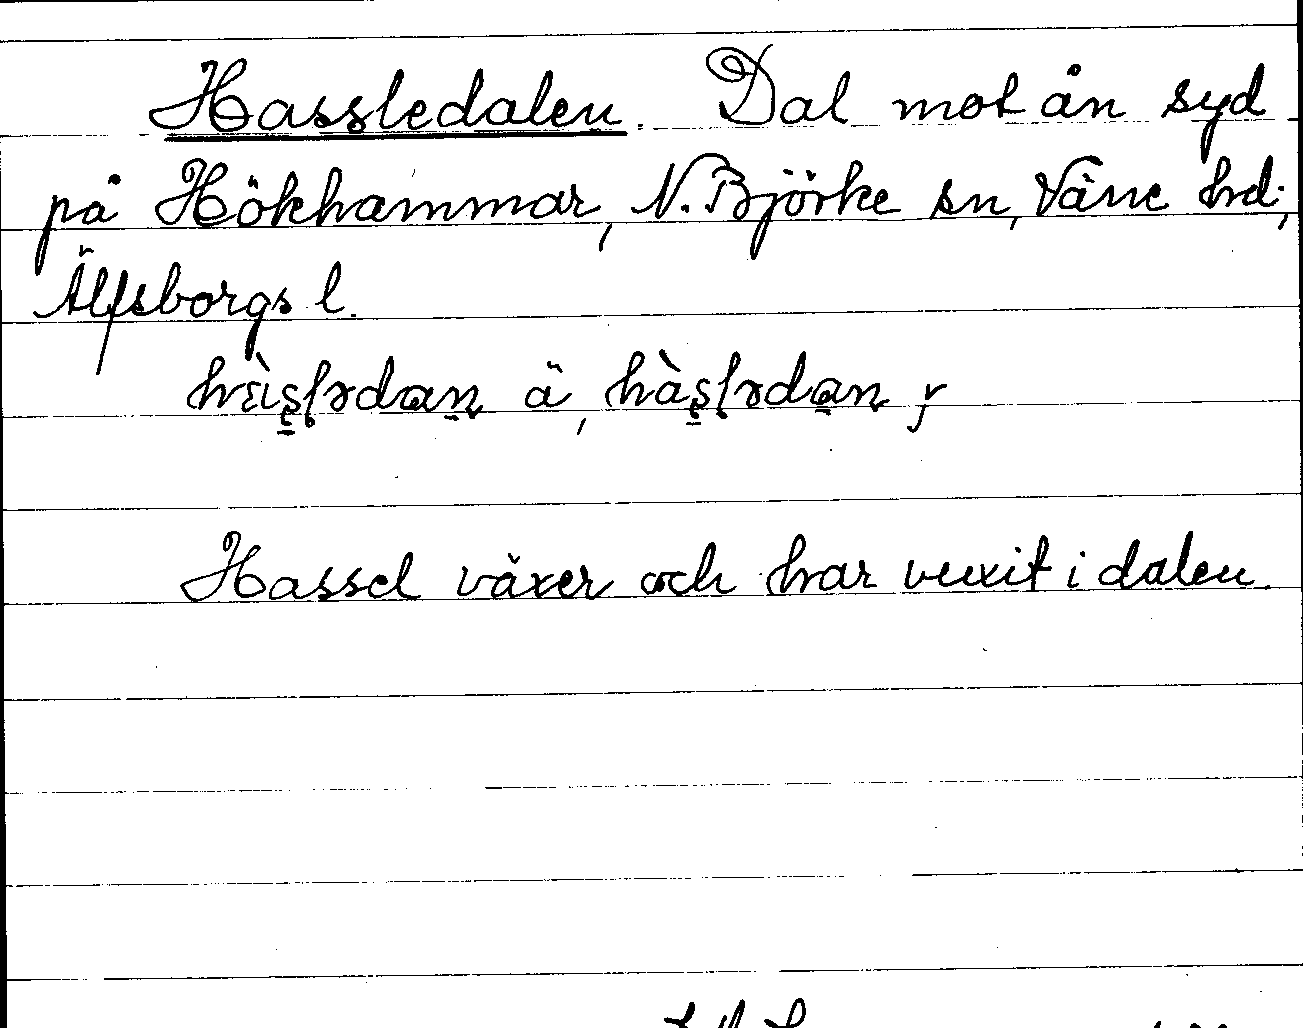 Hassledalen. Dal mot ån syd
på Hökhammar, N. Björke sn, Väne hd;
Älfsborgs l.
ä,
Hassel växer och har vuxit i dalen.